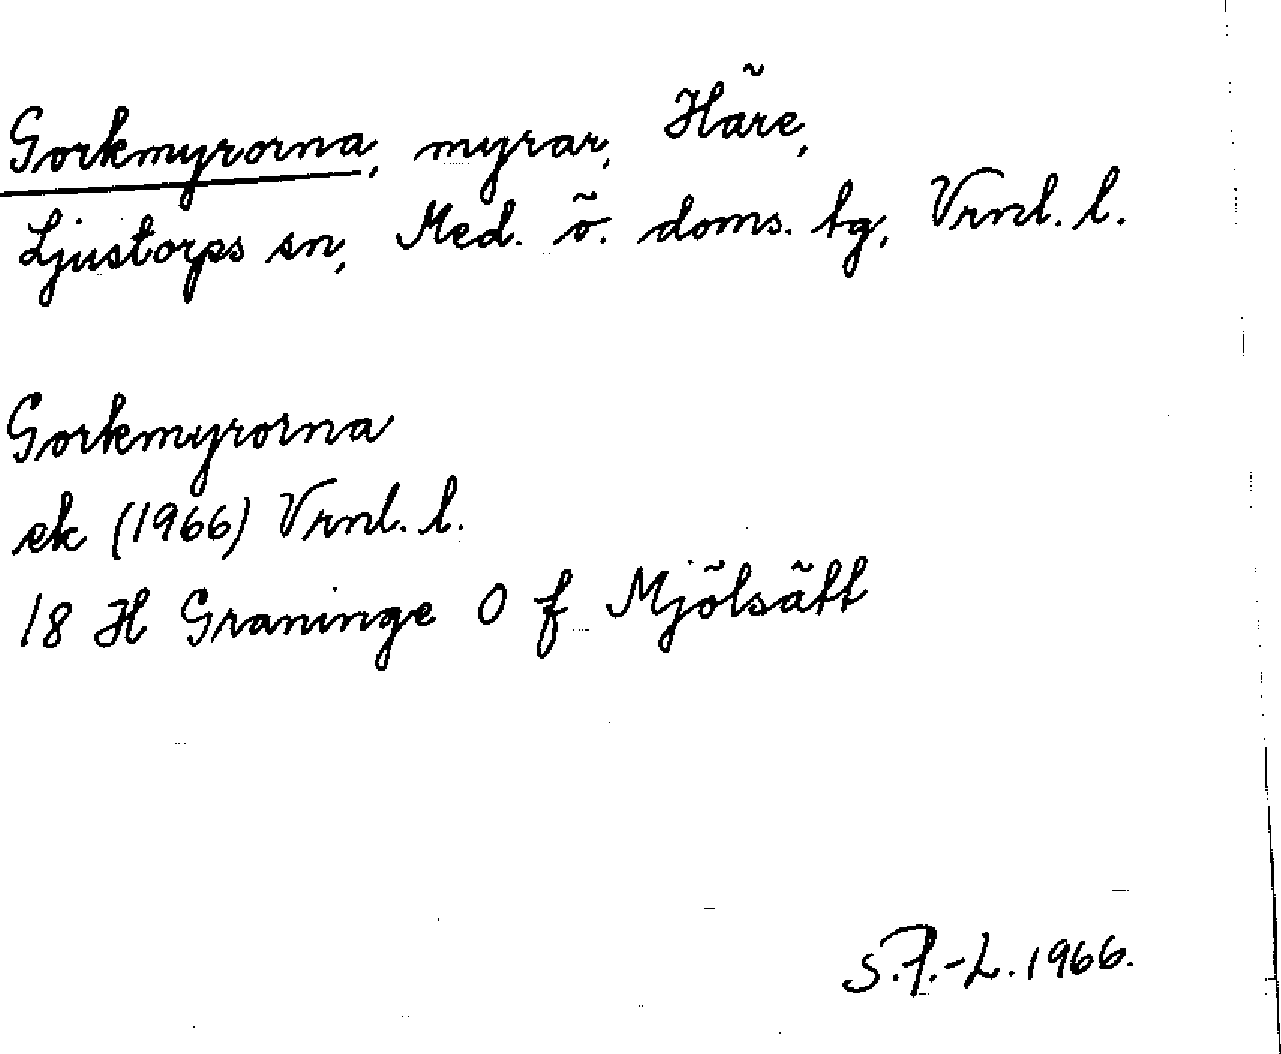 Gorkmyrorna, myrar, Häre,
Ljustorps sn, Med. ö. doms. tg, Vrnl. l.
Gorkmyrorna
ek (1966) Vrnl. l.
18 H Graninge 0 f Mjölsätt
S.F.-L. 1966.